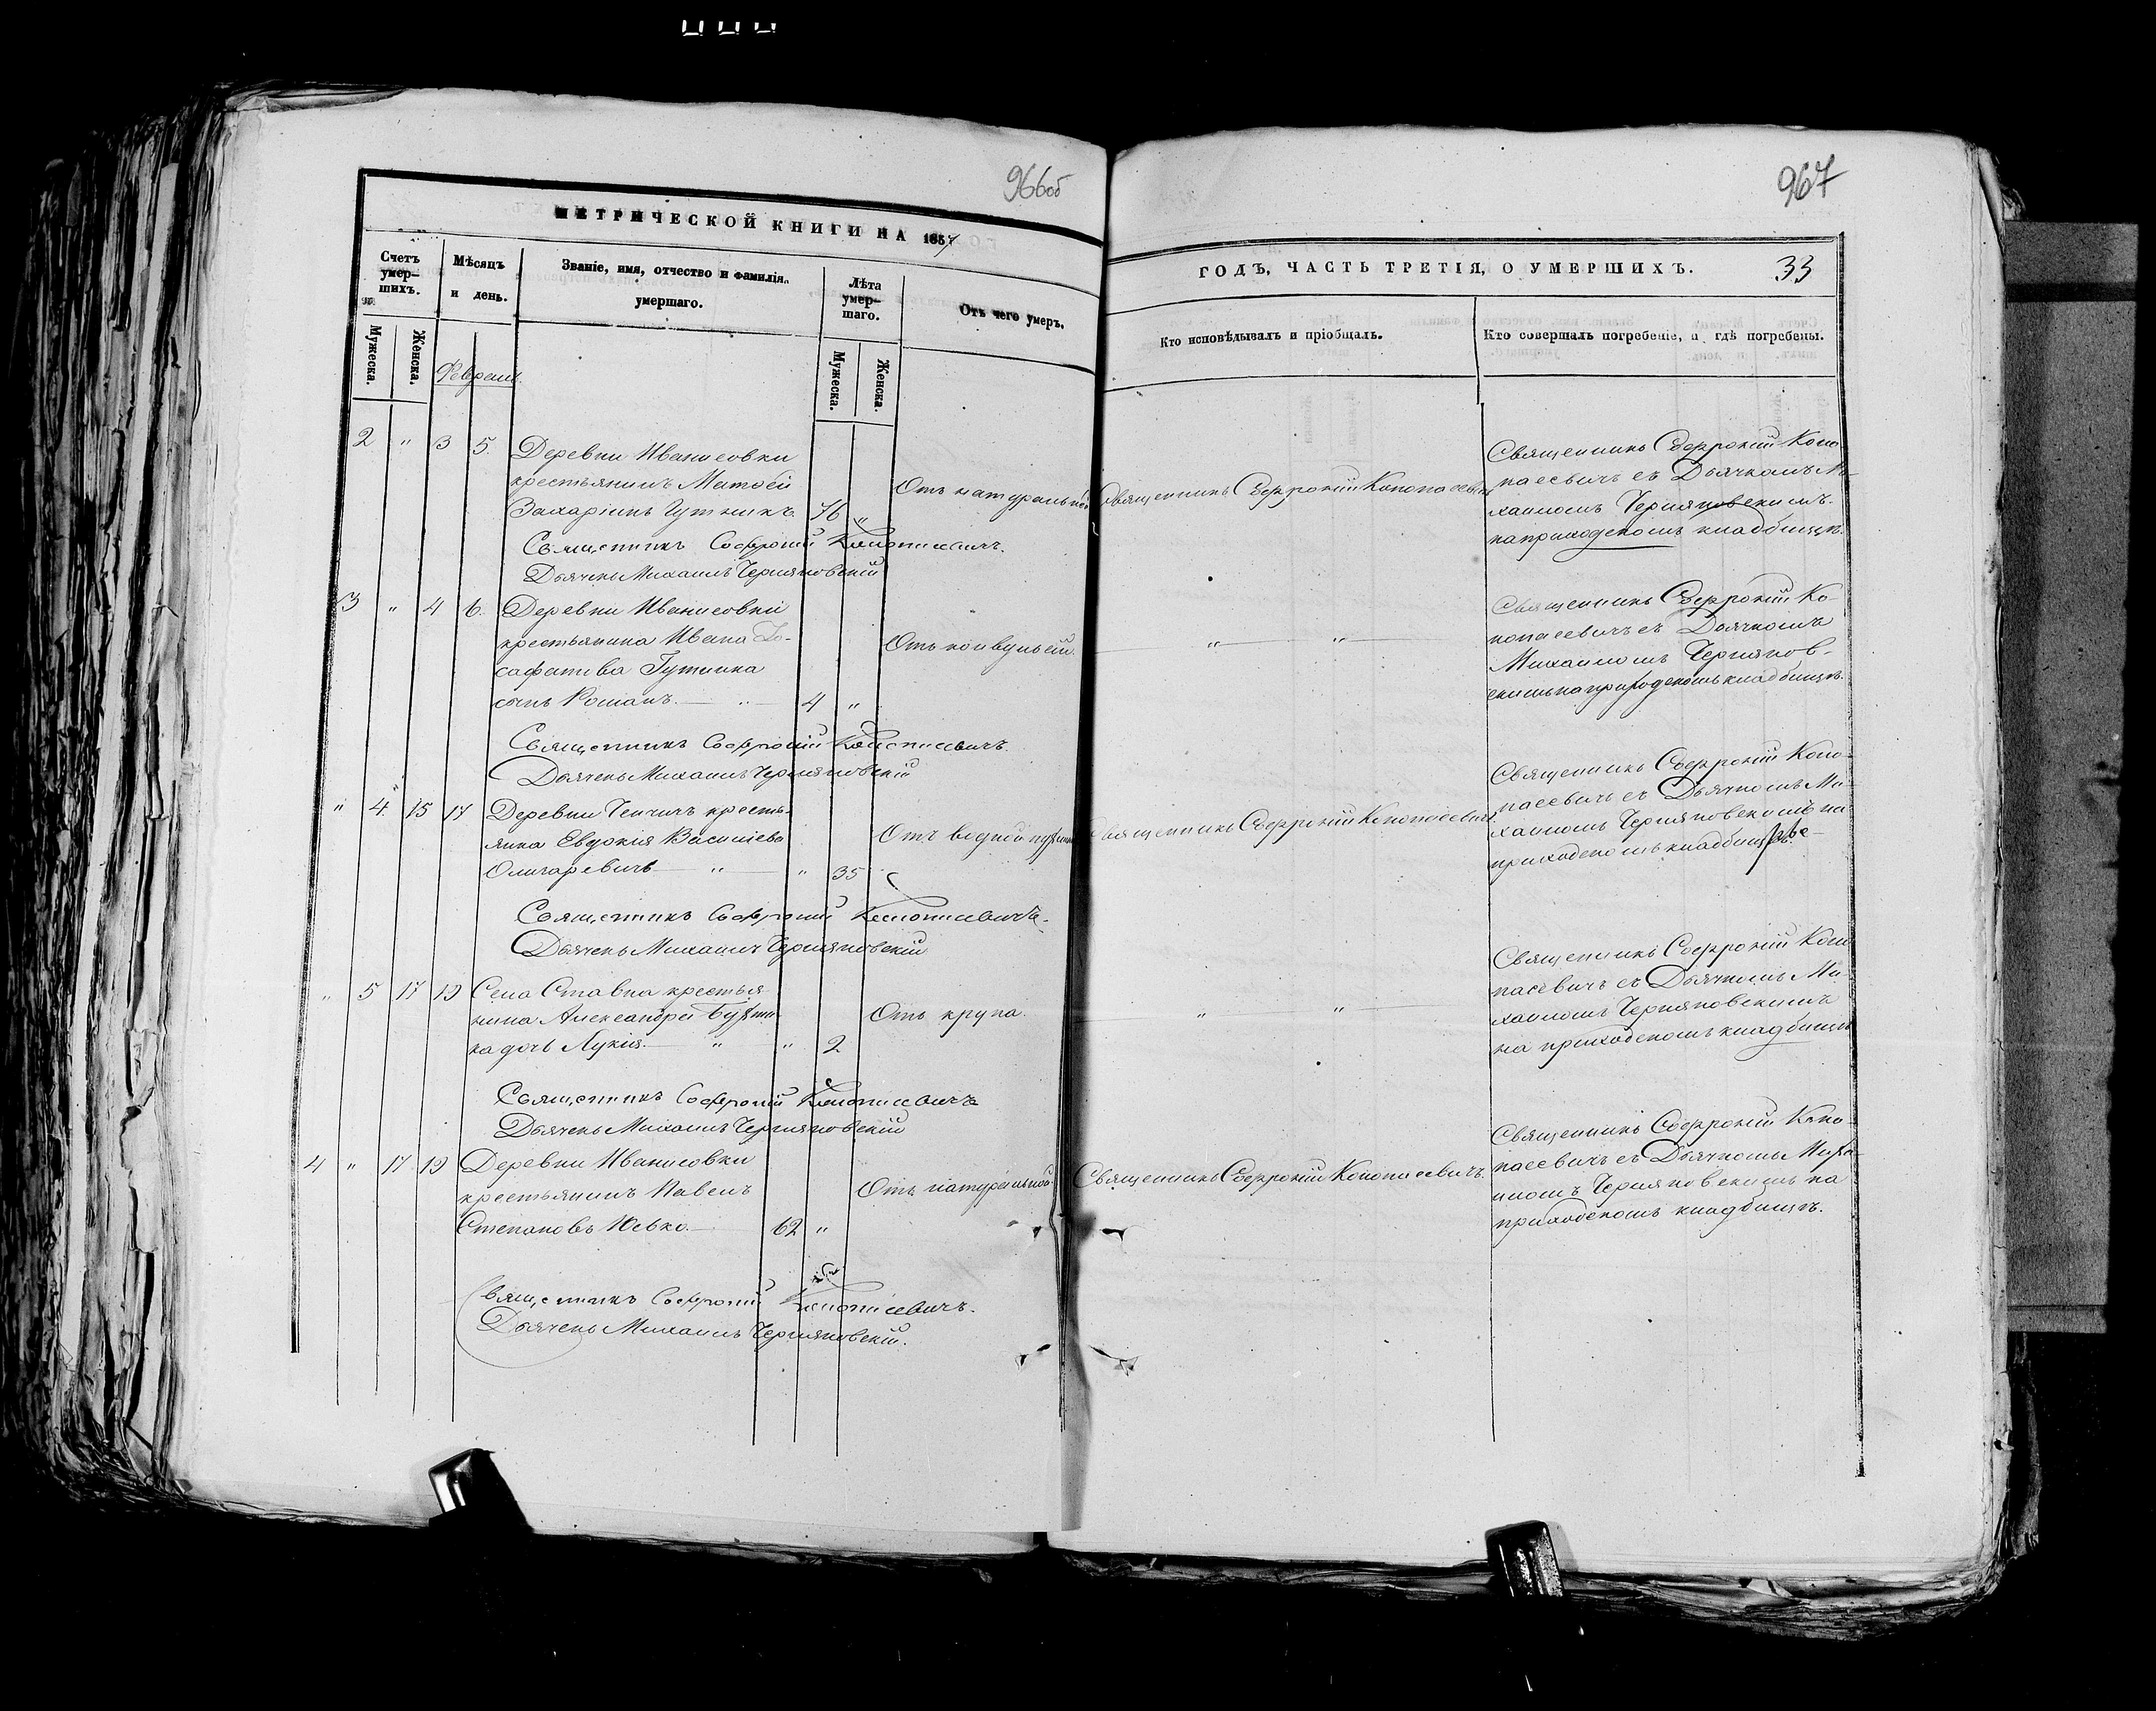 966об
МЕТРИЧЕСКОЙ КНИГИ НА 1857
Счетъ умер-шихъ.
Мѣсяцъ и день.
Званіе, имя, отчество и фамилія умершаго.
Лѣта умер-шаго.
Отъ чего умеръ.
Мужеска.
Женска.
Мужеска.
Женска.
Февраль
2 " 3 5. Деревни Иванисовки
крестьянинъ Матѳей
Захаріинъ Гутникъ. 76 "
Отъ натуральной
Священникъ Софроній Конопасевичъ.
Дьячекъ Михаилъ Черняковскій
3 " 4 6. Деревни Иванисовки
крестьянина Ивана Іо-
сафатова Гутника
сынъ Романъ. — " — 4 "
Отъ конвульсій.
Священникъ Софроній Конопасевичъ.
Дьячекъ Михаилъ Черняковскій
" 4. 15 17 Деревни Чепичъ кресть-
янка Евдокія Васильева
— " — " 35
Отъ водяной
Священникъ Софроній Конопасевичъ.
Дьячекъ Михаилъ Черняковскій
" 5 17 19 Села Ставка крестья-
нина Александра
ка дочь Лукія. — " " 2
Отъ крупа.
Священникъ Софроній Конопасевичъ
Дьячекъ Михаилъ Черняковскій
4 " 17 19 Деревни Иванисовки
крестьянинъ Павелъ
Степановъ Юсько. — 62 "
Отъ натуральной.
Священникъ Софроній Конопасевичъ.
Дьячекъ Михаилъ Черняковскій.
967
ГОДЪ, ЧАСТЬ ТРЕТІЯ, О УМЕРШИХЪ.
33
Кто исповѣдывалъ и пріобщалъ.
Кто совершалъ погребеніе, и гдѣ погребены.
Священникъ Софроній Конопасевичъ
Священникъ Софроній Коно-
пасевичъ съ Дьячкомъ Ми-
хаиломъ Черняковскимъ
на приходскомъ кладбищѣ.
" "
Священникъ Софроній Ко-
нопасевичъ съ Дьячкомъ
Михаиломъ Черняков-
скимъ на приходскомъ кладбищѣ.
Священникъ Софроній Конопасевичъ.
Священникъ Софроній Коно-
пасевичъ съ Дьячкомъ Ми-
хаиломъ Черняковскимъ на
приходскомъ кладбищѣ.
" "
Священникъ Софроній Коно
пасевичъ съ Дьячкомъ Ми-
хаиломъ Черняковскимъ
на приходскомъ кладбищѣ
Священникъ Софроній Конопасевичъ.
Священникъ Софроній Коно-
пасевичъ съ Дьячкомъ Миха-
иломъ Черняковскимъ на
приходскомъ кладбищѣ.